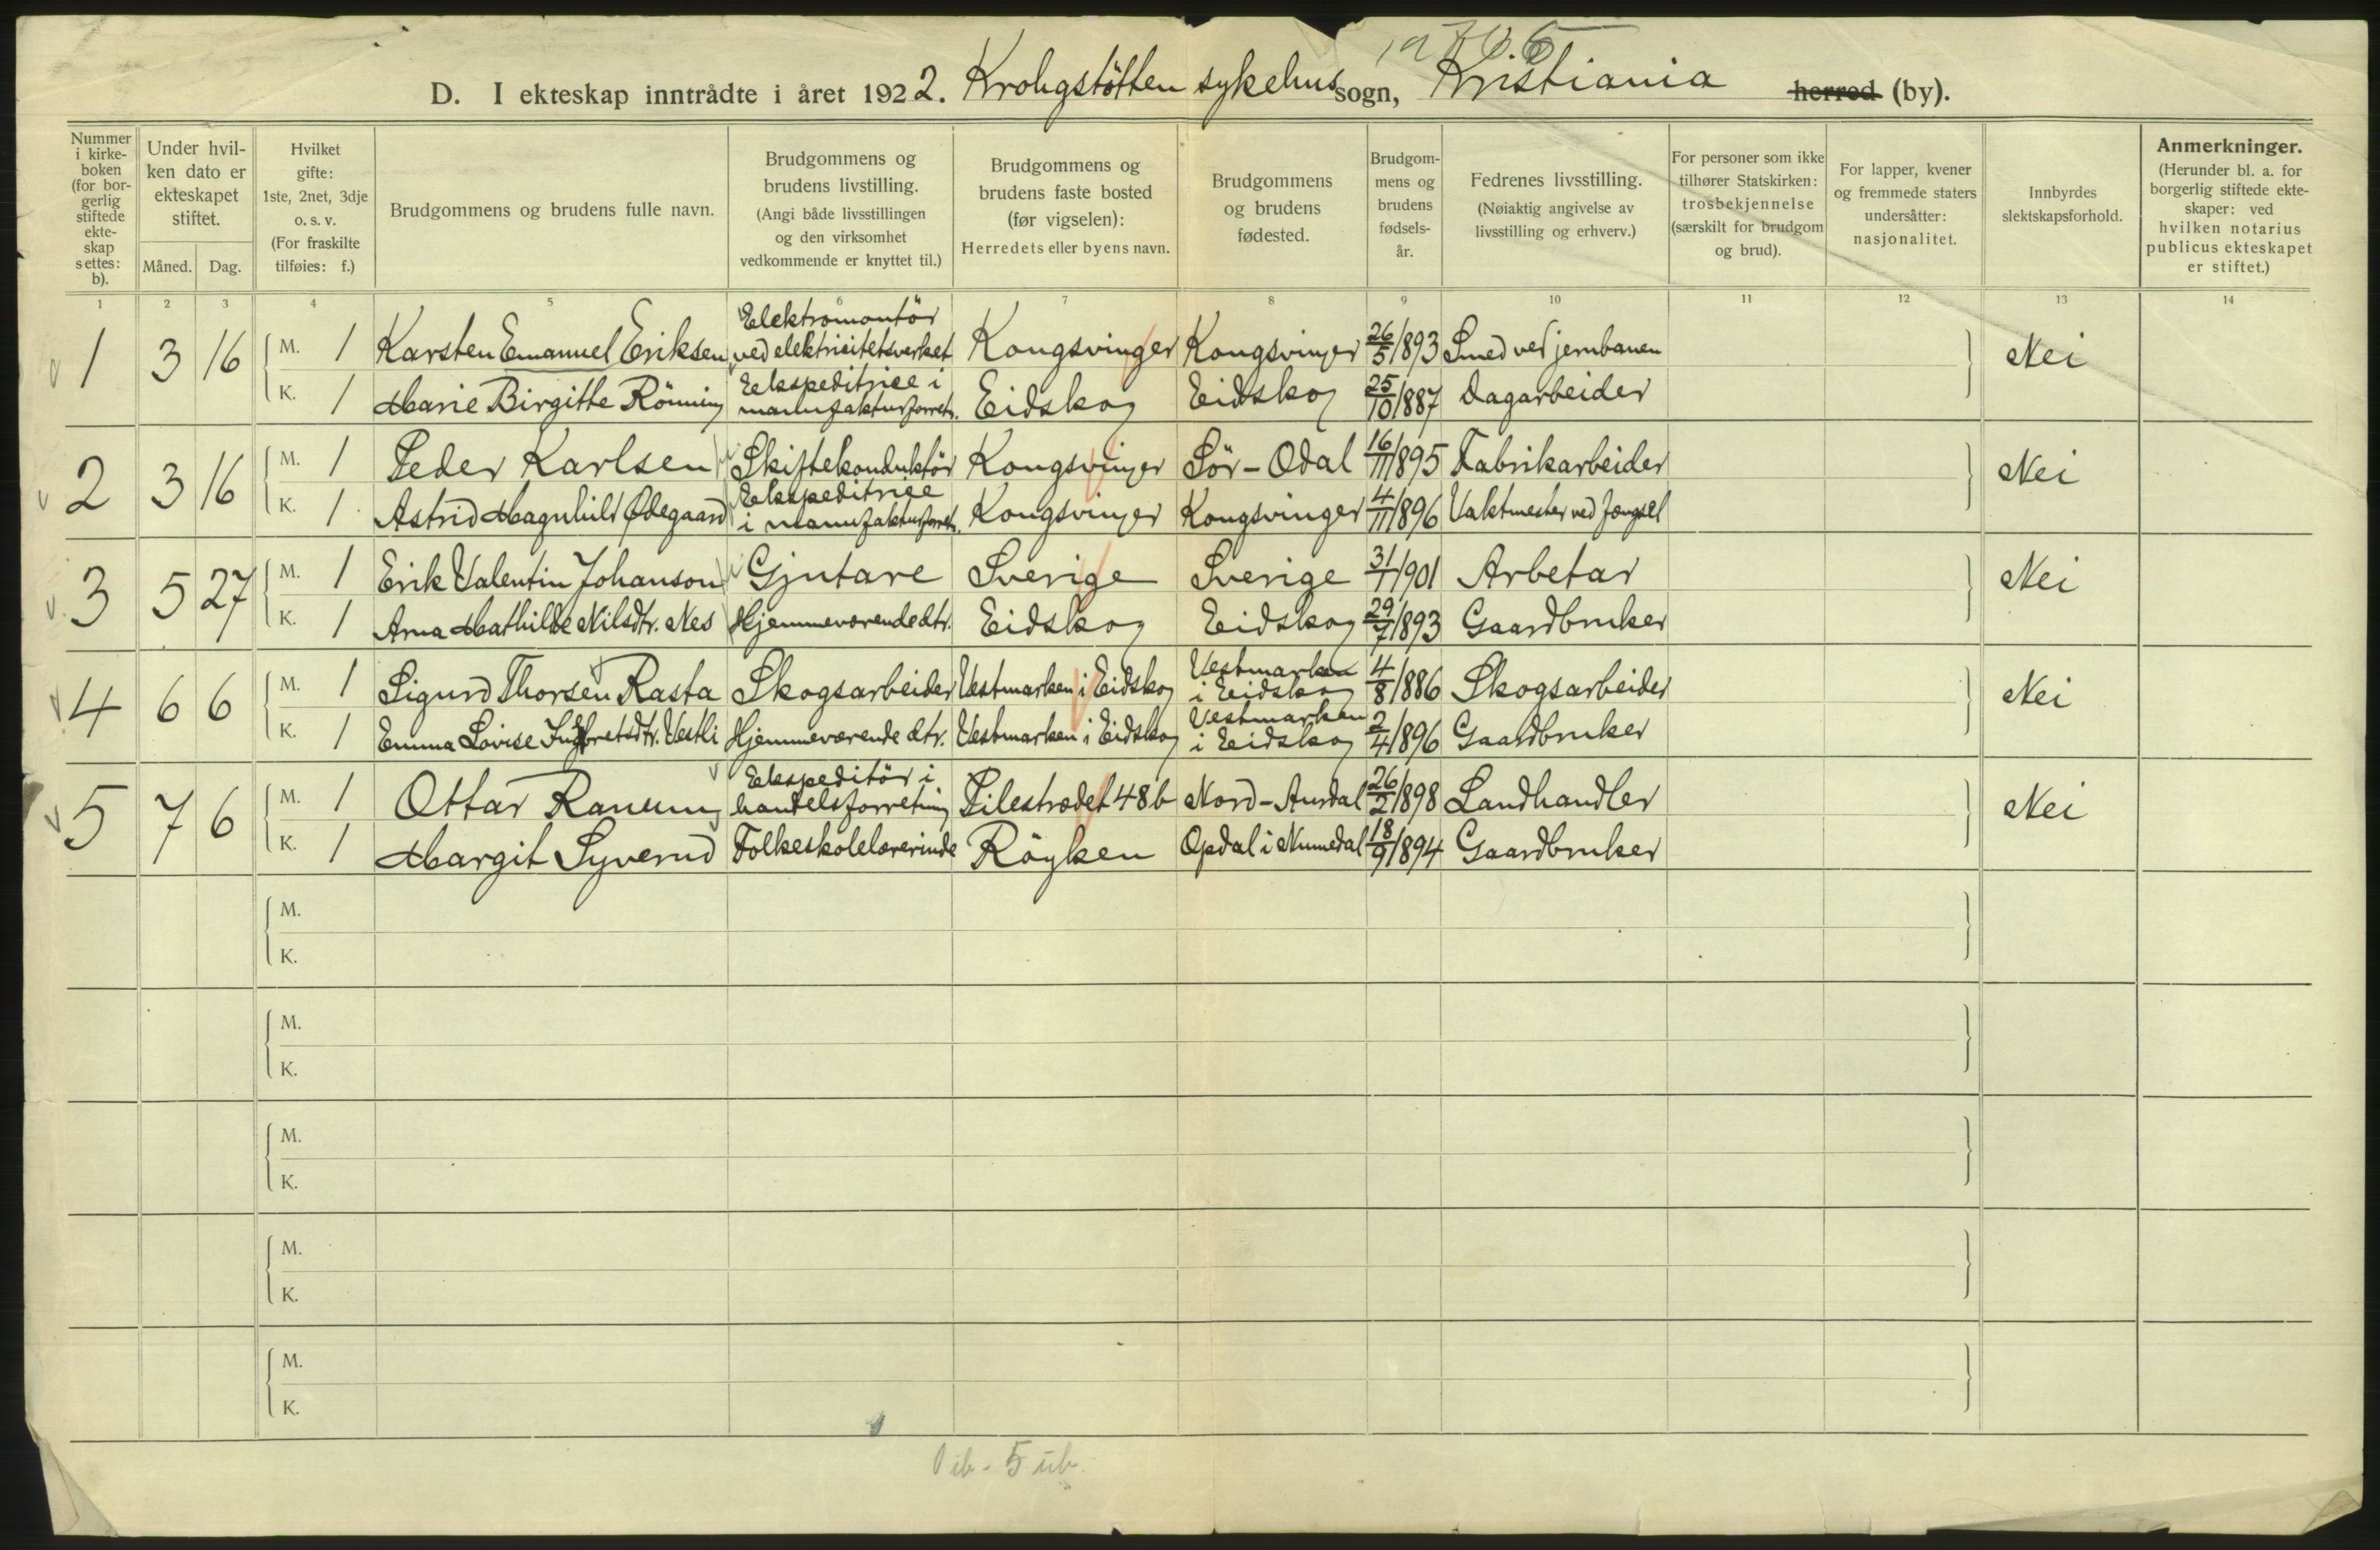 D. I ekteskap inntrådte i året 1922. Krohgstötten sykehus sogn, Kristiania herred (by).
Nummer i kirke-boken (for bor-gerlig stiftede ekte-skap settes: b).
Under hvil-ken dato er ekteskapet stiftet.
Måned. Dag.
Hvilket gifte: 1ste, 2net, 3dje o. s. v. (For fraskilte tilføies: f.)
Brudgommens og brudens fulle navn.
Brudgommens og brudens livstilling. (Angi både livsstillingen og den virksomhet vedkommende er knyttet til.)
Brudgommens og brudens faste bosted (før vigselen): Herredets eller byens navn.
Brudgommens og brudens fødested.
Brudgom-mens og brudens fødsels-år.
Fedrenes livsstilling. (Nøiaktig angivelse av livsstilling og erhverv.)
For personer som ikke tilhører Statskirken: trosbekjennelse (særskilt for brudgom og brud).
For lapper, kvener og fremmede staters undersåtter: nasjonalitet.
Innbyrdes slektskapsforhold.
Anmerkninger. (Herunder bl. a. for borgerlig stiftede ekte-skaper: ved hvilken notarius publicus ekteskapet er stiftet.)
1 2 3 4 5 6 7 8 9 10 11 12 13 14
1 3 16 M. 1 Karsten Emanuel Eriksen Elektromontör ved elektricitetsverket Kongsvinger Kongsvinger 26/5 1893 Smed ved jernbanen Nei
K. 1 Marie Birgitte Rönning Ekspeditrice i manufakturforretn. Eidskog Eidskog 25/10 1887 Dagarbeider
2 3 16 M. 1 Peder Karlsen Skiftekonduktör Kongsvinger Sör-Odal 16/11 1895 Fabrikarbeider Nei
K. 1 Astrid Magnhild Ødegaard Ekspeditrice i manufakturforretn. Kongsvinger Kongsvinger 4/11 1896 Vaktmester ved fængsel
3 5 27 M. 1 Erik Valentin Johanson Gjutare Sverige Sverige 31/1 1901 Arbetar Nei
K. 1 Anna Mathilde Nilsdtr. Nes Hjemmeværende dtr. Eidskog Eidskog 29/7 1893 Gaardbruker
4 6 6 M. 1 Sigurd Thorsen Rasta Skogsarbeider Vestmarken i Eidskog Vestmarken i Eidskog 4/8 1886 Skogsarbeider Nei
K. 1 Emma Lovise Ingebretsdtr. Vestli Hjemmeværende dtr. Vestmarken i Eidskog Vestmarken i Eidskog 2/4 1896 Gaardbruker
5 7 6 M. 1 Ottar Ranum Ekspeditör i handelsforretning Pilestrædet 48b Nord-Aurdal 26/2 1898 Landhandler Nei
K. 1 Margit Syverud Folkeskolelærerinde Röyken Opdal i Numedal 18/9 1894 Gaardbruker
M.
K.
M.
K.
M.
K.
M.
K.
M.
K.